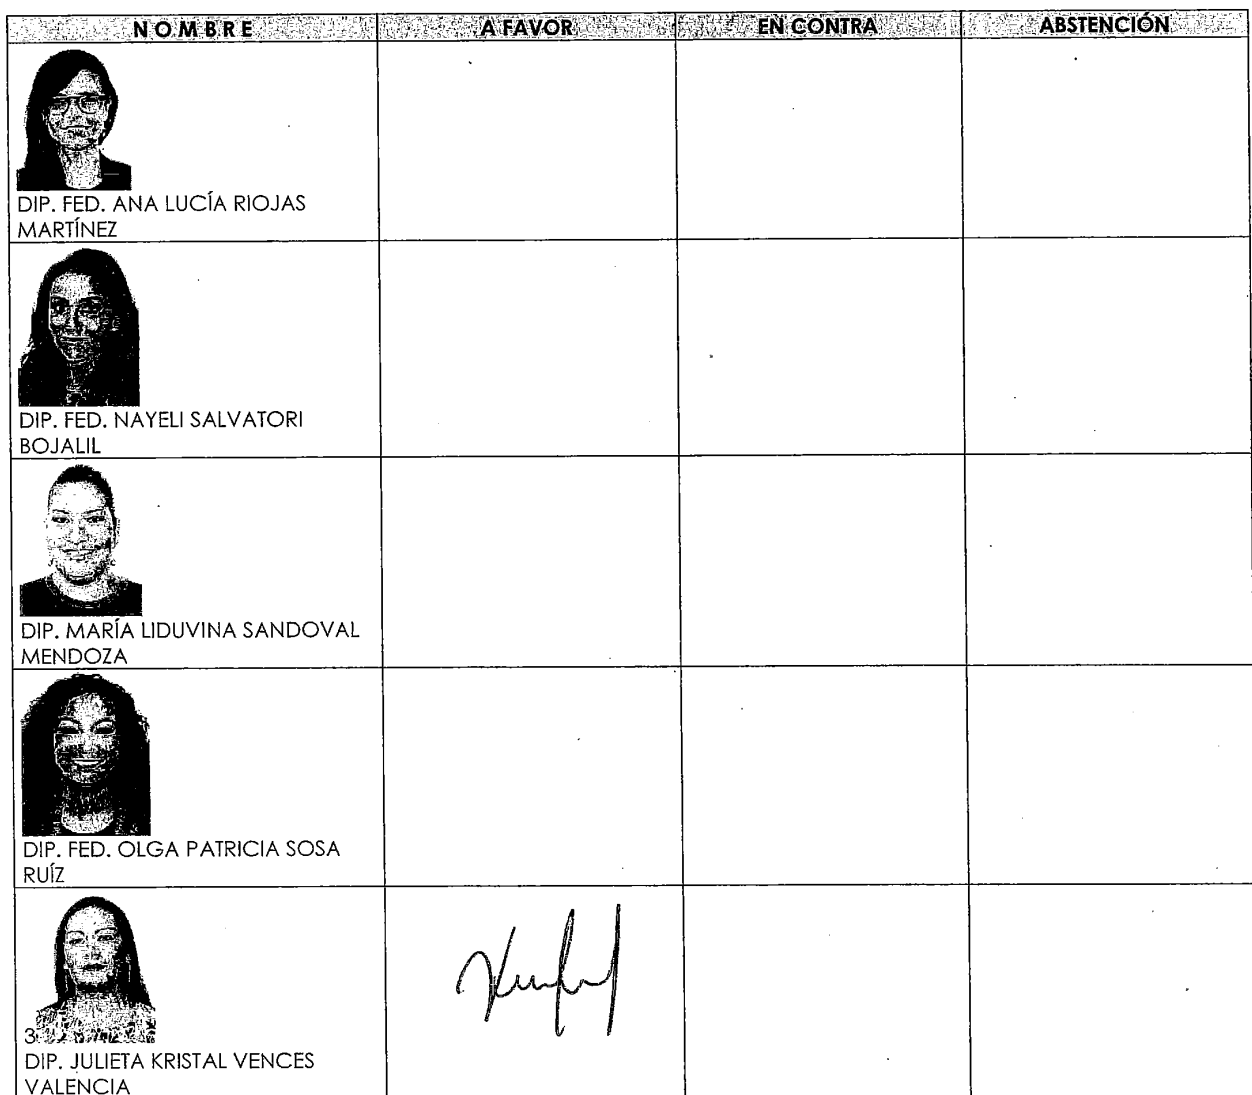 NOMBRE A FAVOR EN CONTRA ABSTENCIÓN
DIP. FED. ANA LUCÍA RIOJAS
MARTÍNEZ
DIP. FED. NAYELI SALVATORI
BOJALIL
DIP. MARÍA LIDUVINA SANDOVAL
MENDOZA
DIP. FED. OLGA PATRICIA SOSA
RUÍZ
3
DIP. JULIETA KRISTAL VENCES
VALENCIA